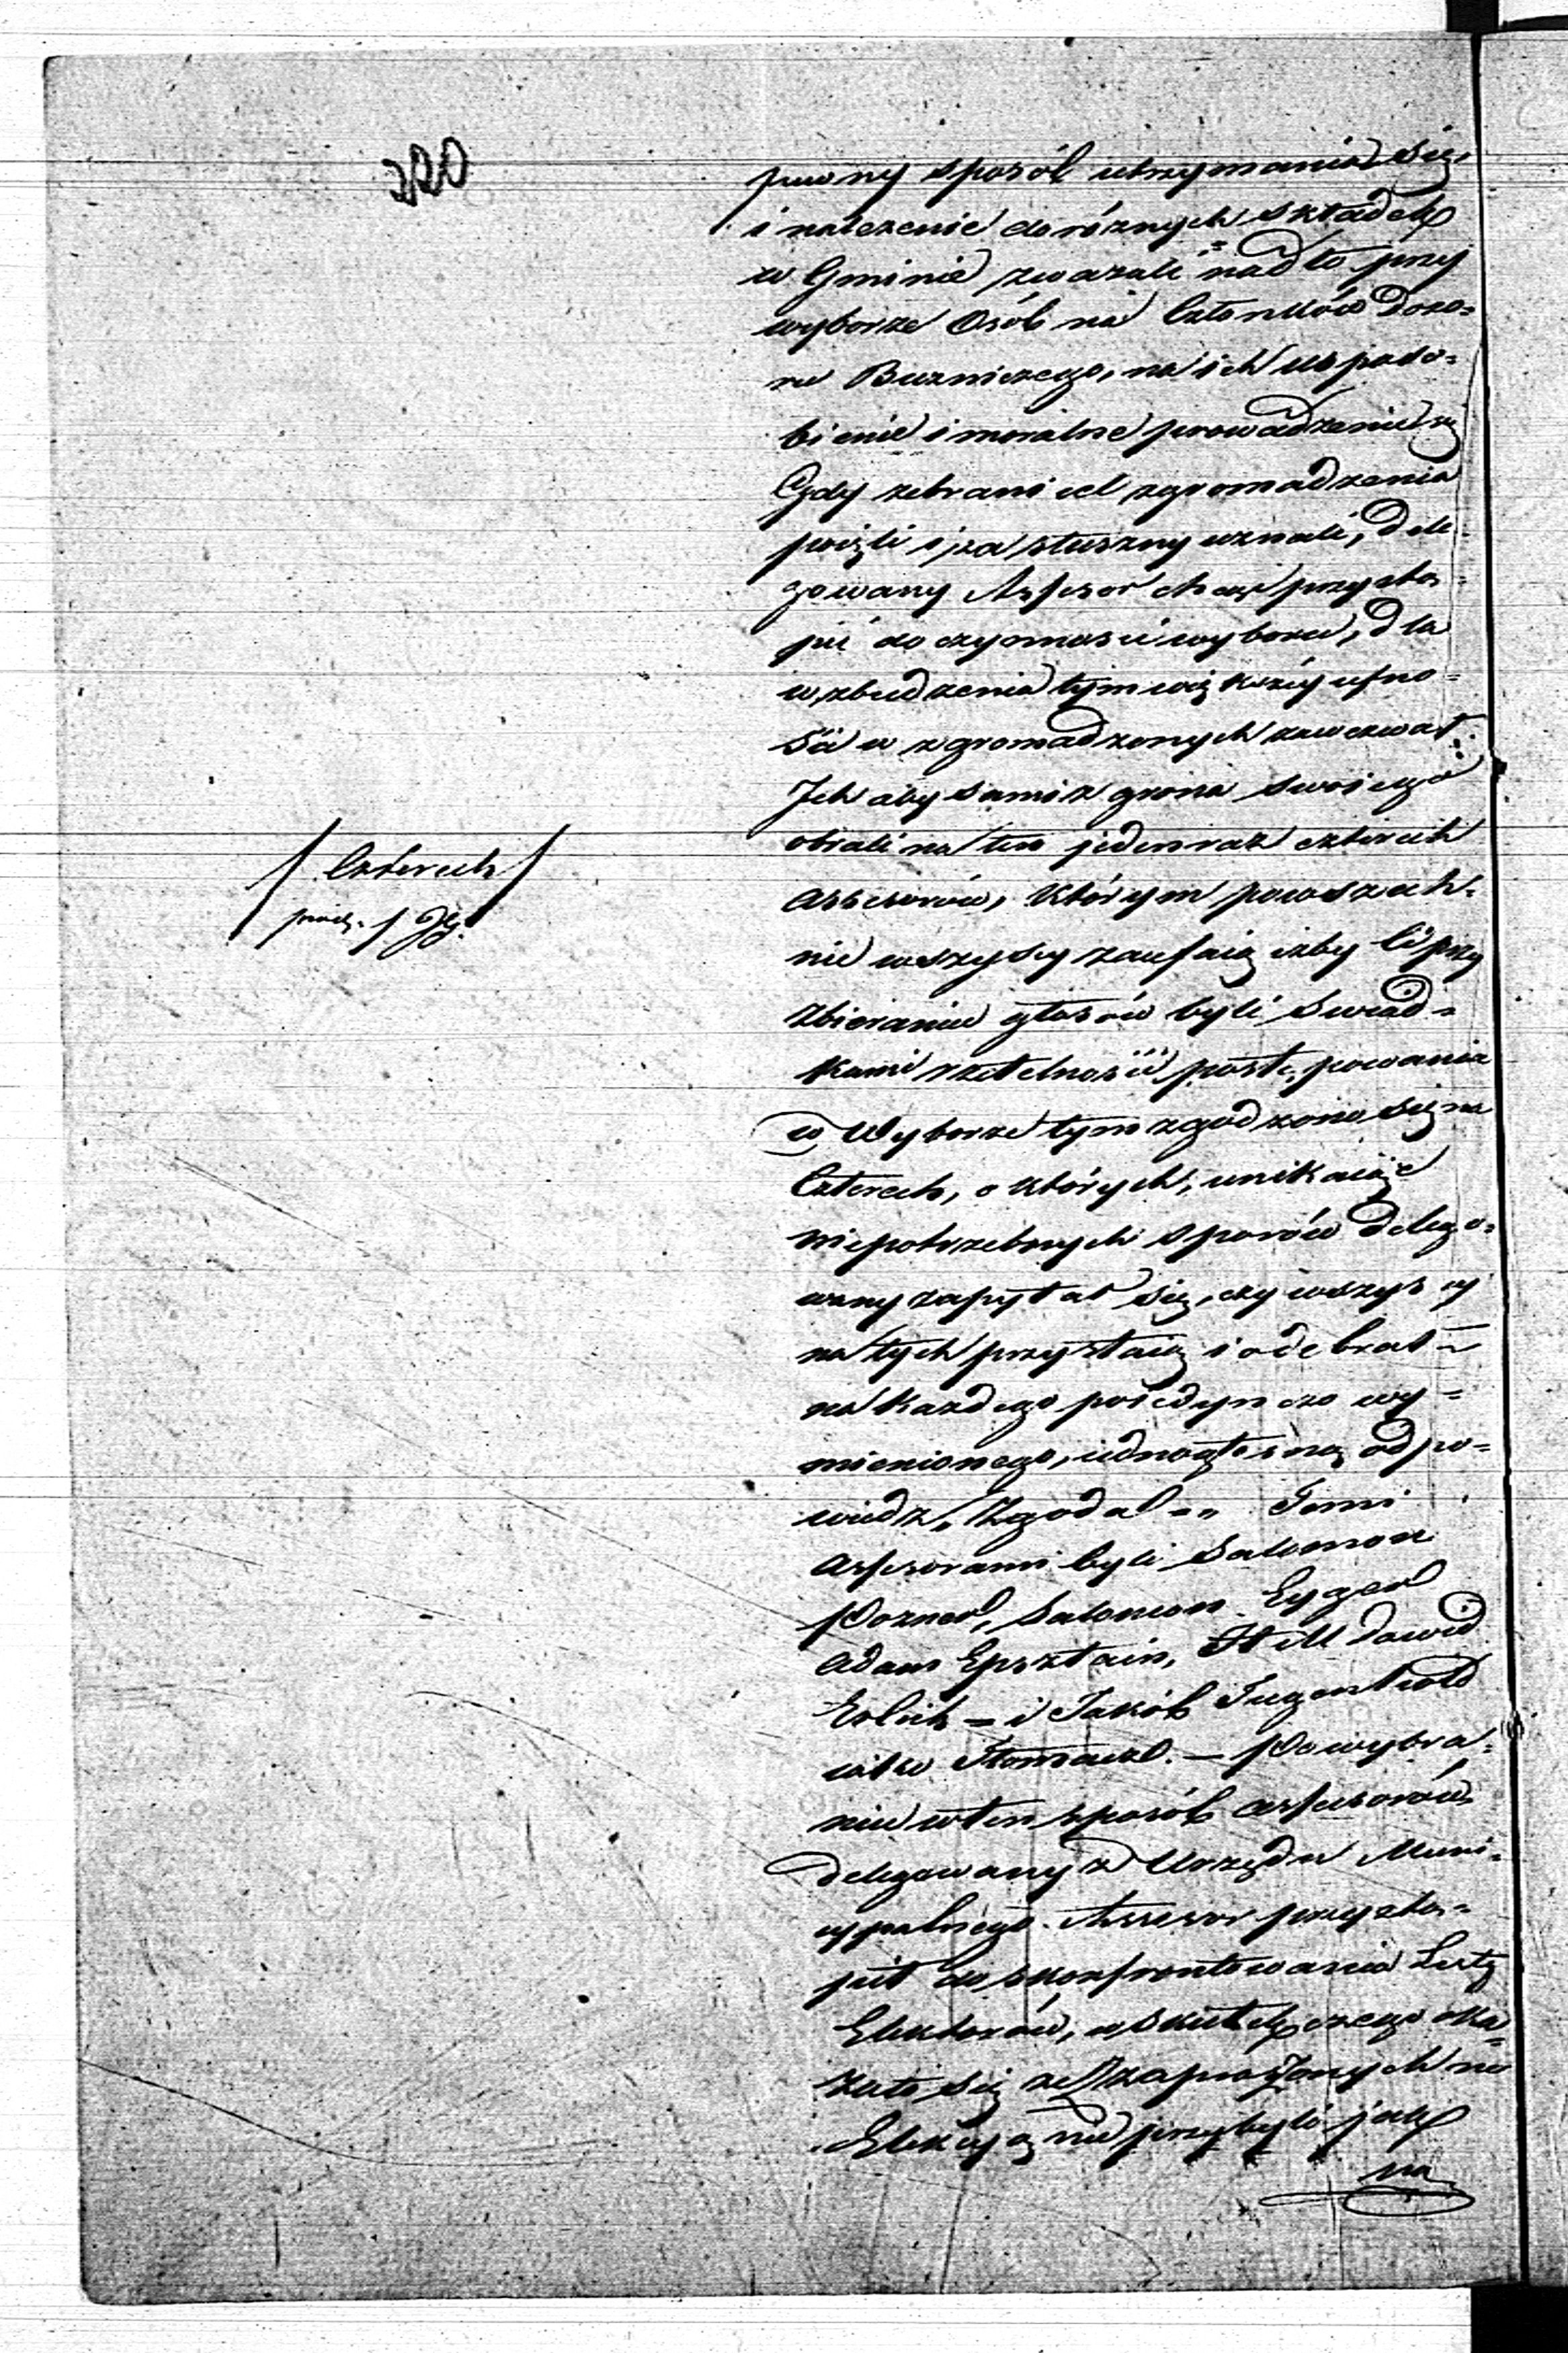 220
pewny sposób utrzymania się,
i należenie do różnych składek
w Gminie, zważali nadto przy
wyborze Osób na Członków Dozo=
ru Bużniczego, na ich uspodo=
bienie i moralne prowadzenie się
Gdy zebrani cel zgromadzenia
pojęli i za słuszny uznali, dele
gowany Assessor chcąc przystą=
pić do czynności wyboru, dla
wzbudzenia tym większéy ufno=
ści w zgromadzonych zawezwał
Ich aby sami z grona swoiego
obrali na ten jeden raz czterech
assessorów, którym powszech=
nie wszyscy zaufaią iżby Ci przy
zbieraniu głosów byli Swiad=
kami rzetelności postępowania
w Wyborze tym zgodzono się na
Czterech, o których, unikaiąc
niepotrzebnych sporów delego=
wany zapytał się, czy wszyscy
na tych przystaią i odebrał
na każdego poiedynczo wy=
mienionego, iednogłosną odpo=
wiedz „Zgoda!" Temi
assessorami byli Salomon
Pozner, Salomon Eyger
Adam Epsztain, Dawid
Erlich = i Jakób Tugenthold
iako Tłomacz. — Po wybra=
niu w ten sposób assessorów
delegowany z Urzędu Muni=
cypalnego Assessor przystą=
pił do skonfrontowania Listy
Elektorów, w skutek czego oka=
zało się że z zaproszonych na
Elekcyą nie przybyli jak
na
/ Czterech /